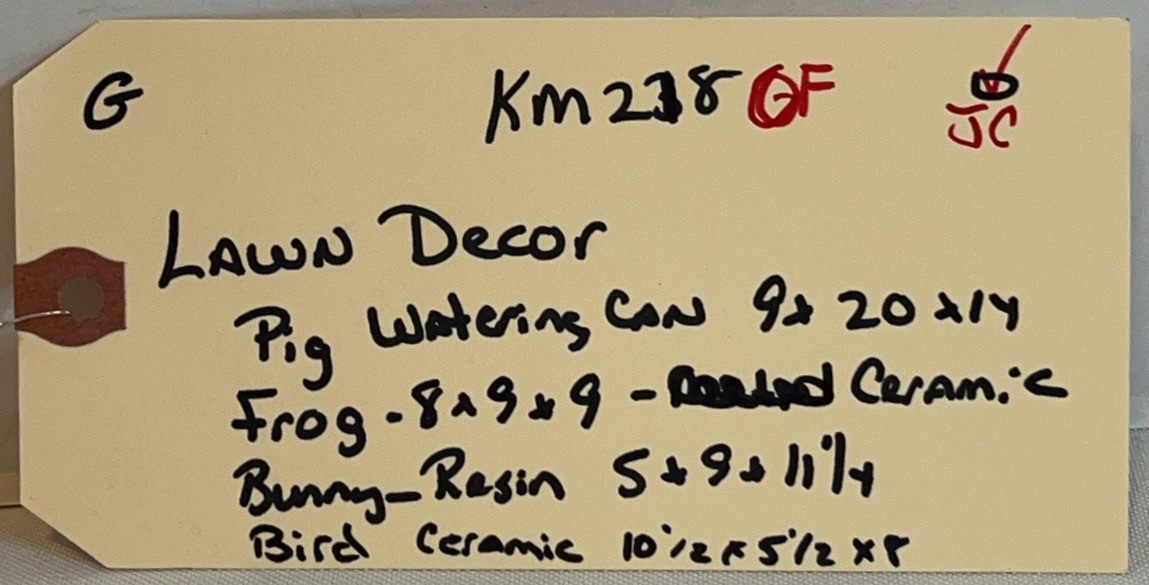 G KM238 GF JC
LAWN Decor
Pig Watering CAN 9x20x14
Frog - 8x9x9 - Ceramic
Bunny - Resin 5x9x11 1/4
Bird Ceramic 10 1/2 x 5 1/2 x 8